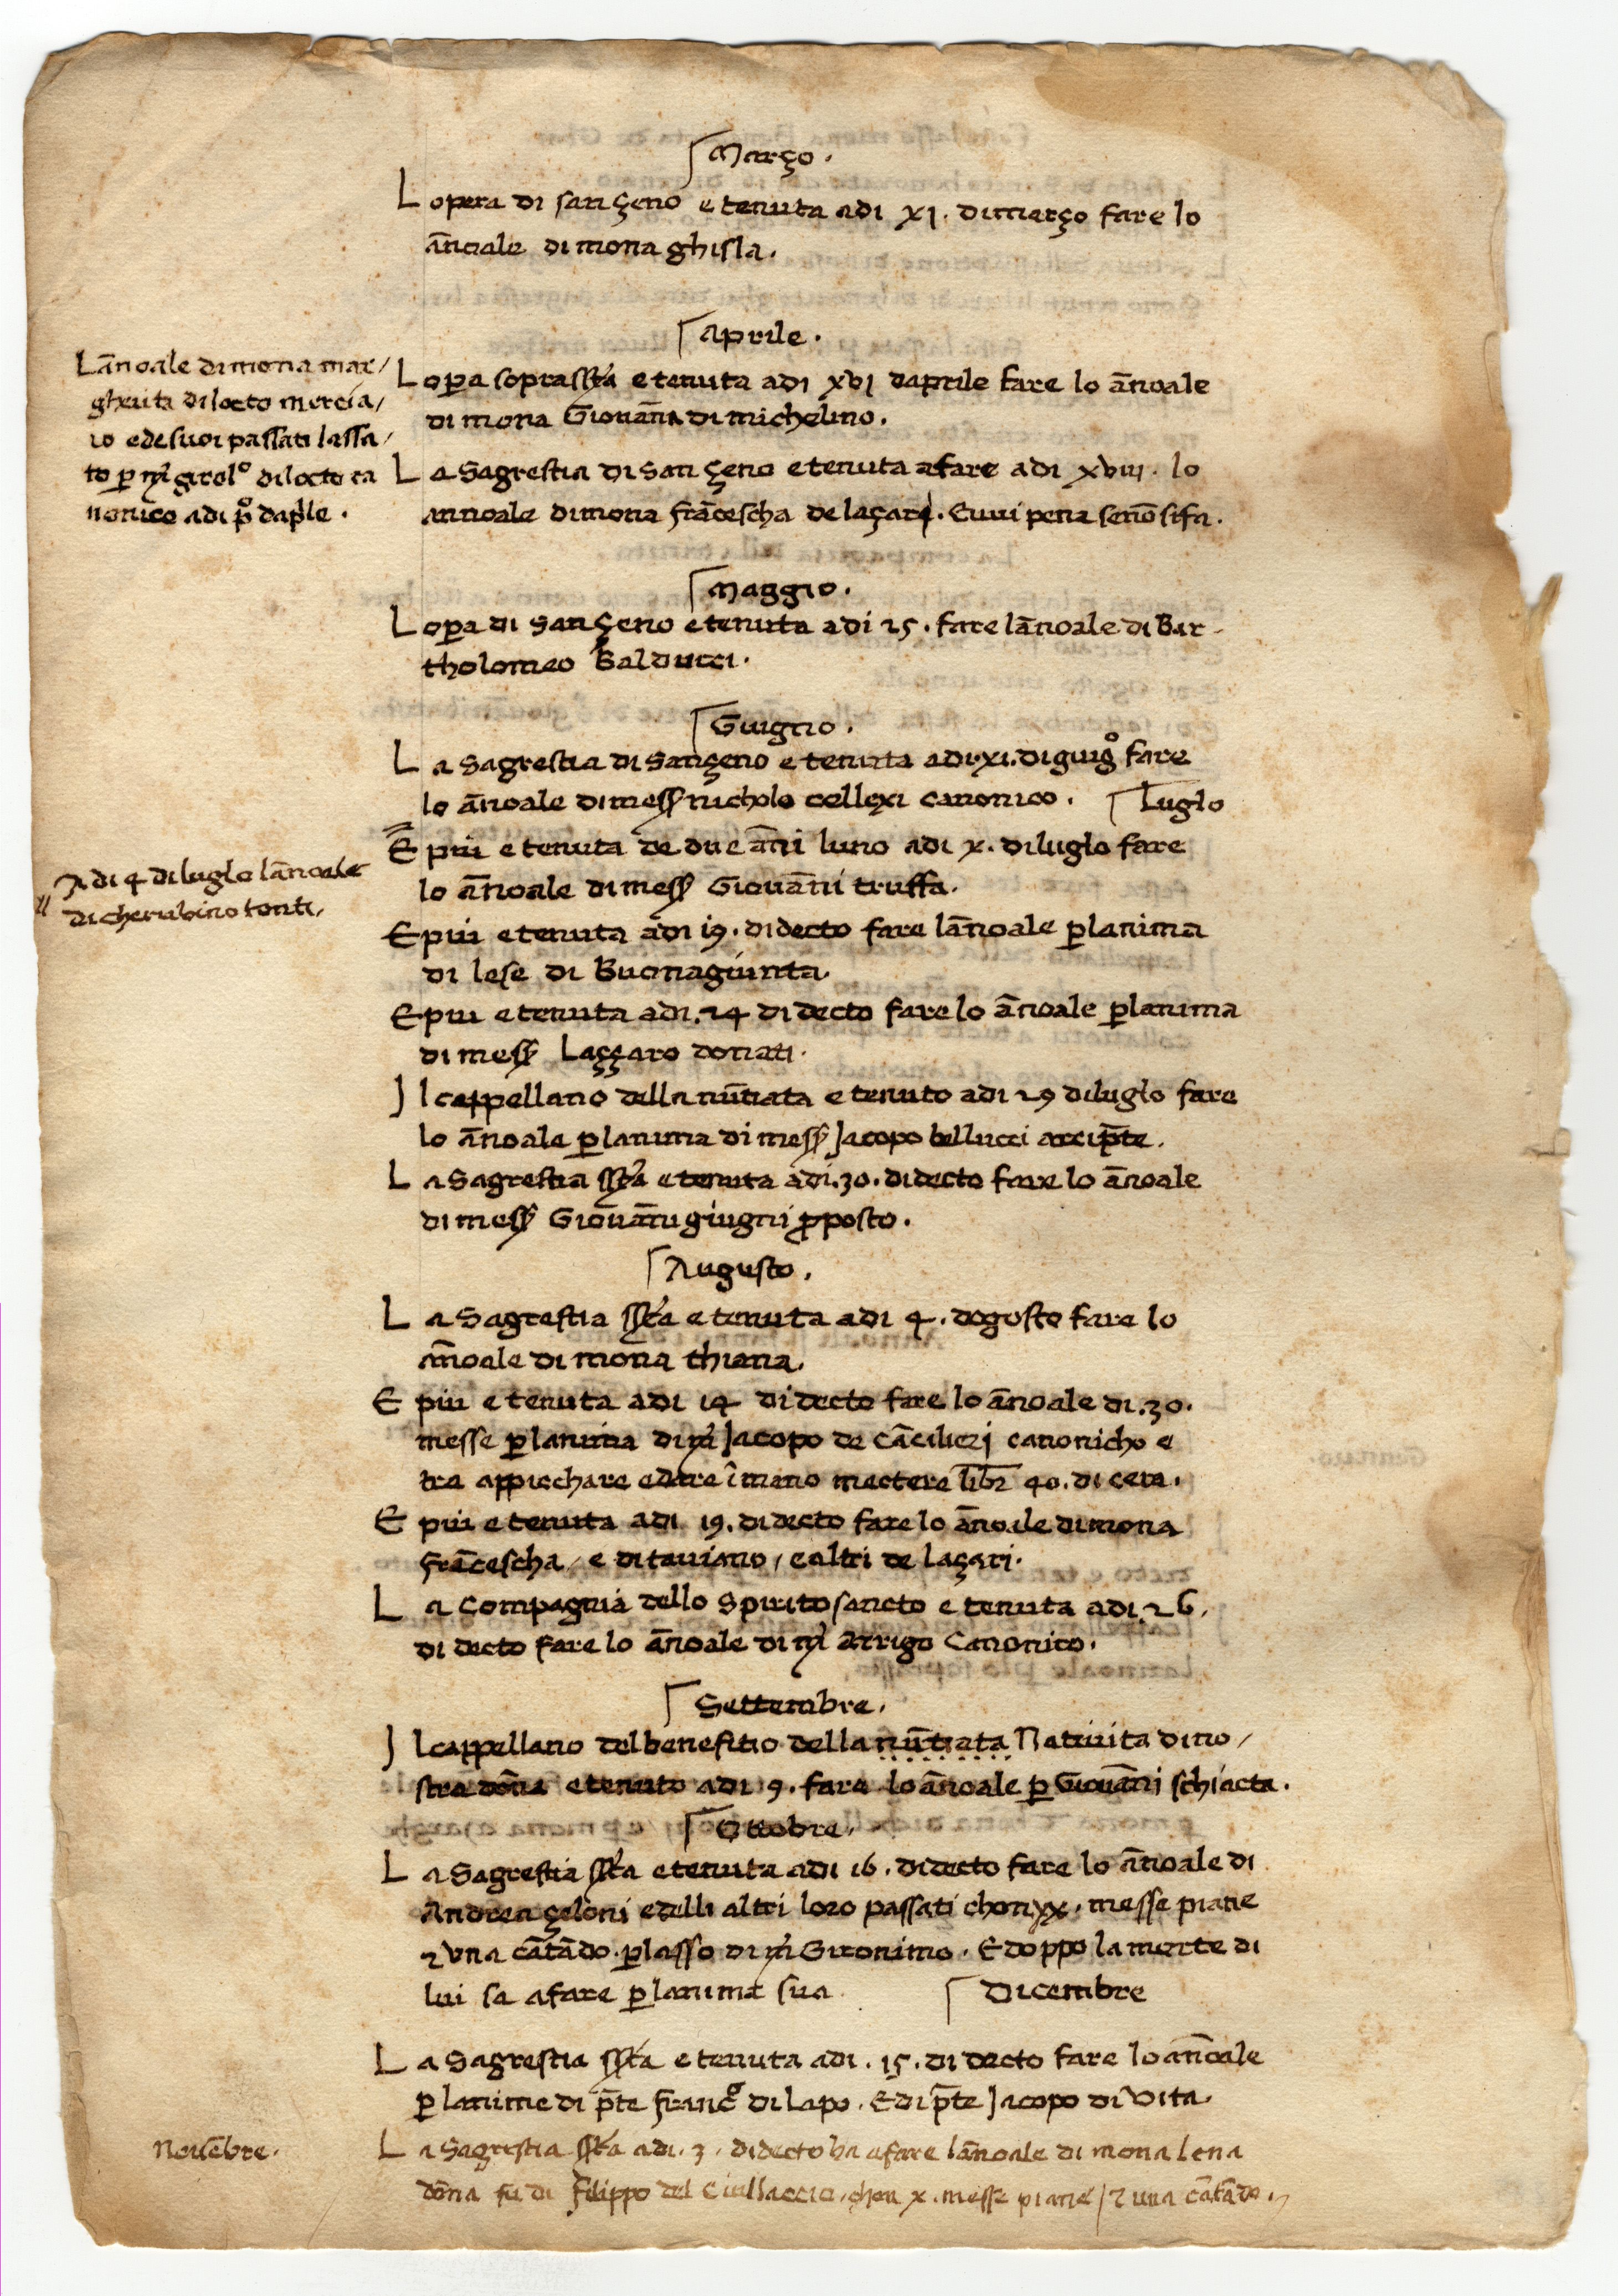 Março.
L opera di san Çeno e tenuta adi xj. dimarço fare lo
ānoale di mona ghisla.
Aprile.
Lānoale dimona mar/
gherita dilocto mercia/
io edesuoi passati lassa/
to p̱ m̃ girolº dilocto ca
nonico adi pº daple.
L op̱a soprasc̃ta e tenuta adi xvj daprile fare lo ānoale
di mona Giouāna di michelino.
L a Sagrestia di san Çeno e tenuta afare adi xviij. lo
annoale dimona frācescha de laçari. Euui pena senō sifa.
Maggio.
L op̱a di san Çeno e tenuta adi 25. fare lānoale di Bar-
tholomeo Balducci.
Guigno.
L a Sagrestia di sançeno e tenuta adi.xi.diguigº fare
lo ānoale dimess̃ nicholo cellexi canonico. Luglo
E piu e tenuta de due āni luno adi x. diluglo fare
lo ānoale dimess̃ Giouāni truffa.
Adi 4 diluglo lānoale
dicherubino tonti,
E piu e tenuta adi 19. didecto fare lānoale p̱lanima
di lese di Buonagiunta.
E piu e tenuta adi.24 didecto fare lo ānoale p̱lanima
dimess̃ Laççaro donati.
Jl cappellano della nūtiata e tenuto adi 29 diluglo fare
lo ānoale p̱lanima di mess̃ Jacopo bellucci arcip̄te.
L a Sagrestia ss̃ta e tenuta adi.30. didecto fare lo ānoale
dimess̃ Giouāni giugni p̱posto.
Augusto.
L a Sagrestia ss̃ta e tenuta adi 4. dogosto fare lo
ānoale di mona thiana.
E piu e tenuta adi 14 didecto fare lo ānoale di.30.
messe p̱lanima di m̃ Jacopo de Cācilieri canonicho e
tra appicchare edare ī mano mectere libr̄ 40. di cera.
E piu e tenuta adi 19. didecto fare lo ānoale dimona
frācescha / e ditauiano / ealtri de laçari.
L a Compagnia dello Spirito sancto e tenuta adi.26.
di decto fare lo ānoale di m̃ Arrigo Canonico.
Settembre.
Jl cappellano delbenefitio della nūtiata Natiuita dino/
stra dōna e tenuto adi 9. fare lo ānoale p̱ Giouāni schiacta.
Ottobre.
L a Sagrestia ss̃ta e tenuta adi 16. didecto fare lo ānoale di
Andrea çeloni edelli altri loro passati chon xx. messe piane
⁊ vna cātādo. p̱lasso di m̃ Gironimo. E doppo la morte di
lui sa afare p̱lanima sua Dicembre
L a Sagrestia ss̃ta e tenuta adi.15. di decto fare lo ānoale
p̱ lanime di p̄te francº di lapo. E di p̄te Jacopo di Vita.
Nouēbre.
L a Sagrestia ss̃ta adi.3. didecto ha afare lānoale di mona lena
dōna fu di Filippo del Ciullaccio, chon x. messe piane / ⁊ una cātādo.